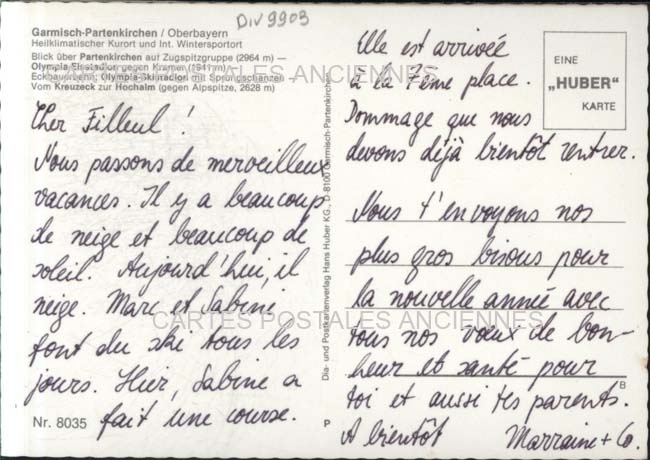 Div 9903
Garmisch-Partenkirchen / Oberbayern
Heilklimatischer Kurort und Int. Wintersportort
Blick über Partenkirchen auf Zugspitzgruppe (2964 m) –
Olympia-Eisstadion gegen Kramer (1981 m) –
Eckbauerbahn, Olympia-Skistadion mit Sprungschanzen –
Vom Kreuzeck zur Hochalm (gegen Alpspitze, 2628 m)
Cher Filleul !
Nous passons de merveilleux
vacances. Il y a beaucoup
de neige et beaucoup de
soleil. Aujourd'hui, il
neige. Marc et Sabine
font du ski tous les
jours. Hier, Sabine a
fait une course.
Nr. 8035
Dia- und Postkartenverlag Hans Huber KG., D-8100 Garmisch-Partenkirchen
P
Elle est arrivée
à la 7ème place.
Dommage que nous
devons déjà bientôt rentrer.
Nous t'envoyons nos
plus gros bisous pour
la nouvelle année avec
tous nos vœux de bon-
heur et santé pour
toi et aussi tes parents.
A bientôt Marraine + Co.
EINE
„HUBER"
KARTE
B
CARTES POSTALES ANCIENNES
CARTES POSTALES ANCIENNES